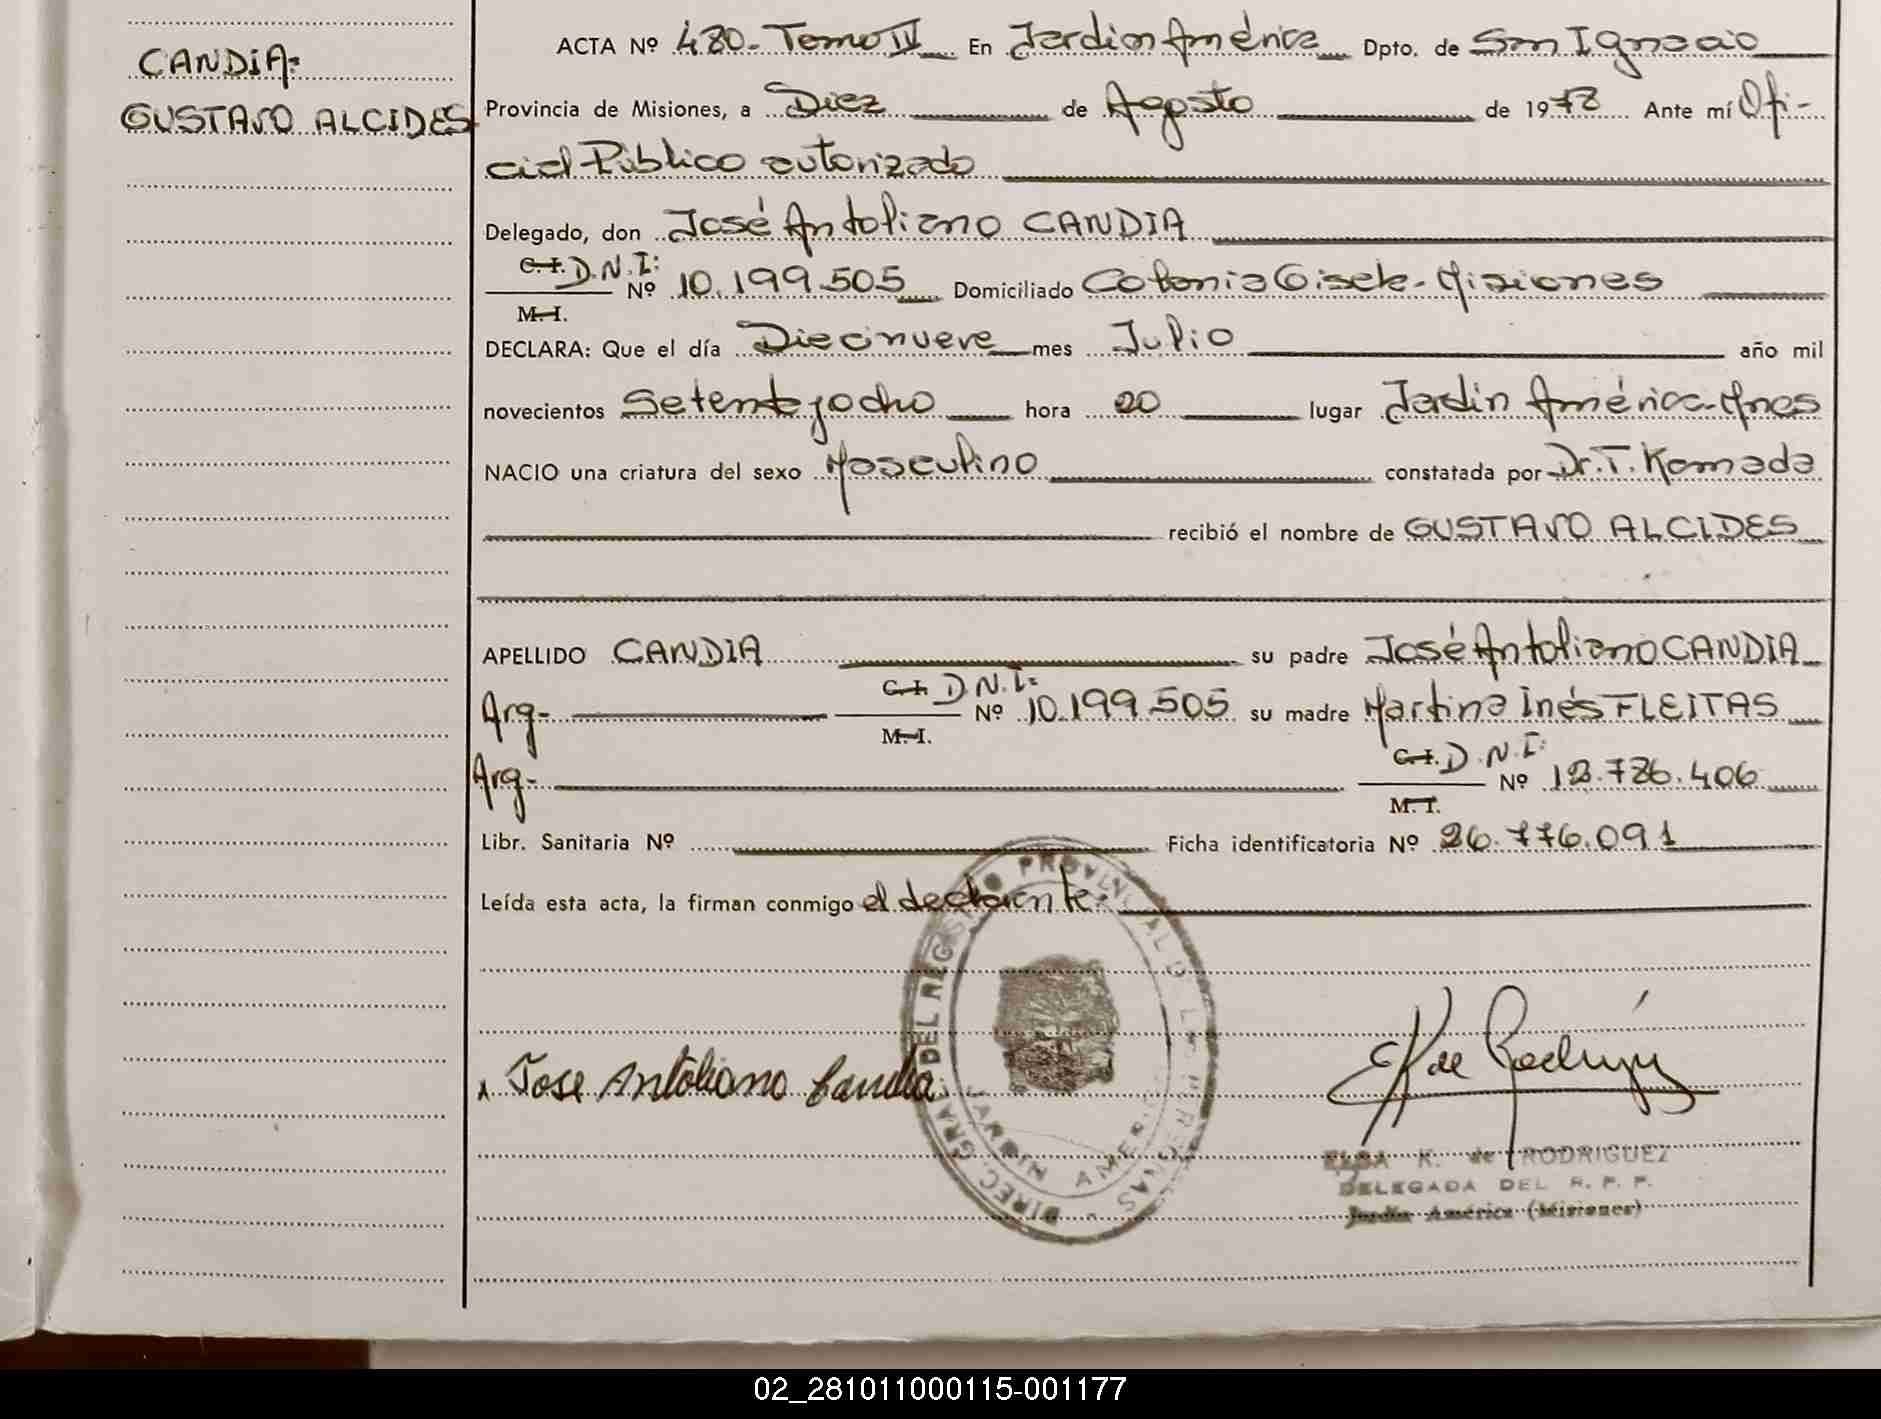 CANDIA:
GUSTAVO ALCIDES
ACTA Nº 480- Tomo II En Jardín América Dpto. de San Ignacio
Provincia de Misiones, a Diez de Agosto de 1978 Ante mí Ofi-
cial Público autorizado
Delegado, don José Antoliano CANDIA
C.I. D.N.I:
Nº 10.199.505 Domiciliado Colonia Gisela-Misiones
M.I.
DECLARA: Que el día Diecinueve mes Julio año mil
novecientos Setentayocho hora 20 lugar Jardín América-Mnes
NACIO una criatura del sexo Masculino constatada por Dr.T.Kamada
recibió el nombre de GUSTAVO ALCIDES
APELLIDO CANDIA su padre José Antoliano CANDIA
Arg- C.I. D.N.I: Nº 10.199.505 su madre Martina Inés FLEITAS
M.I.
Arg- C.I. D.N.I: Nº 12.786.406
M.I.
Libr. Sanitaria Nº Ficha identificatoria Nº 26.776.091
Leída esta acta, la firman conmigo el declarante.
DIREC. GRAL. DEL REGISTRO PROVINCIAL DE LAS PERSONAS
JARDIN AMERICA
Jose Antoliano Candia
EK de Rodríguez
ELSA K. de RODRIGUEZ
DELEGADA DEL R. P. P.
Jardín América (Misiones)
02_281011000115-001177